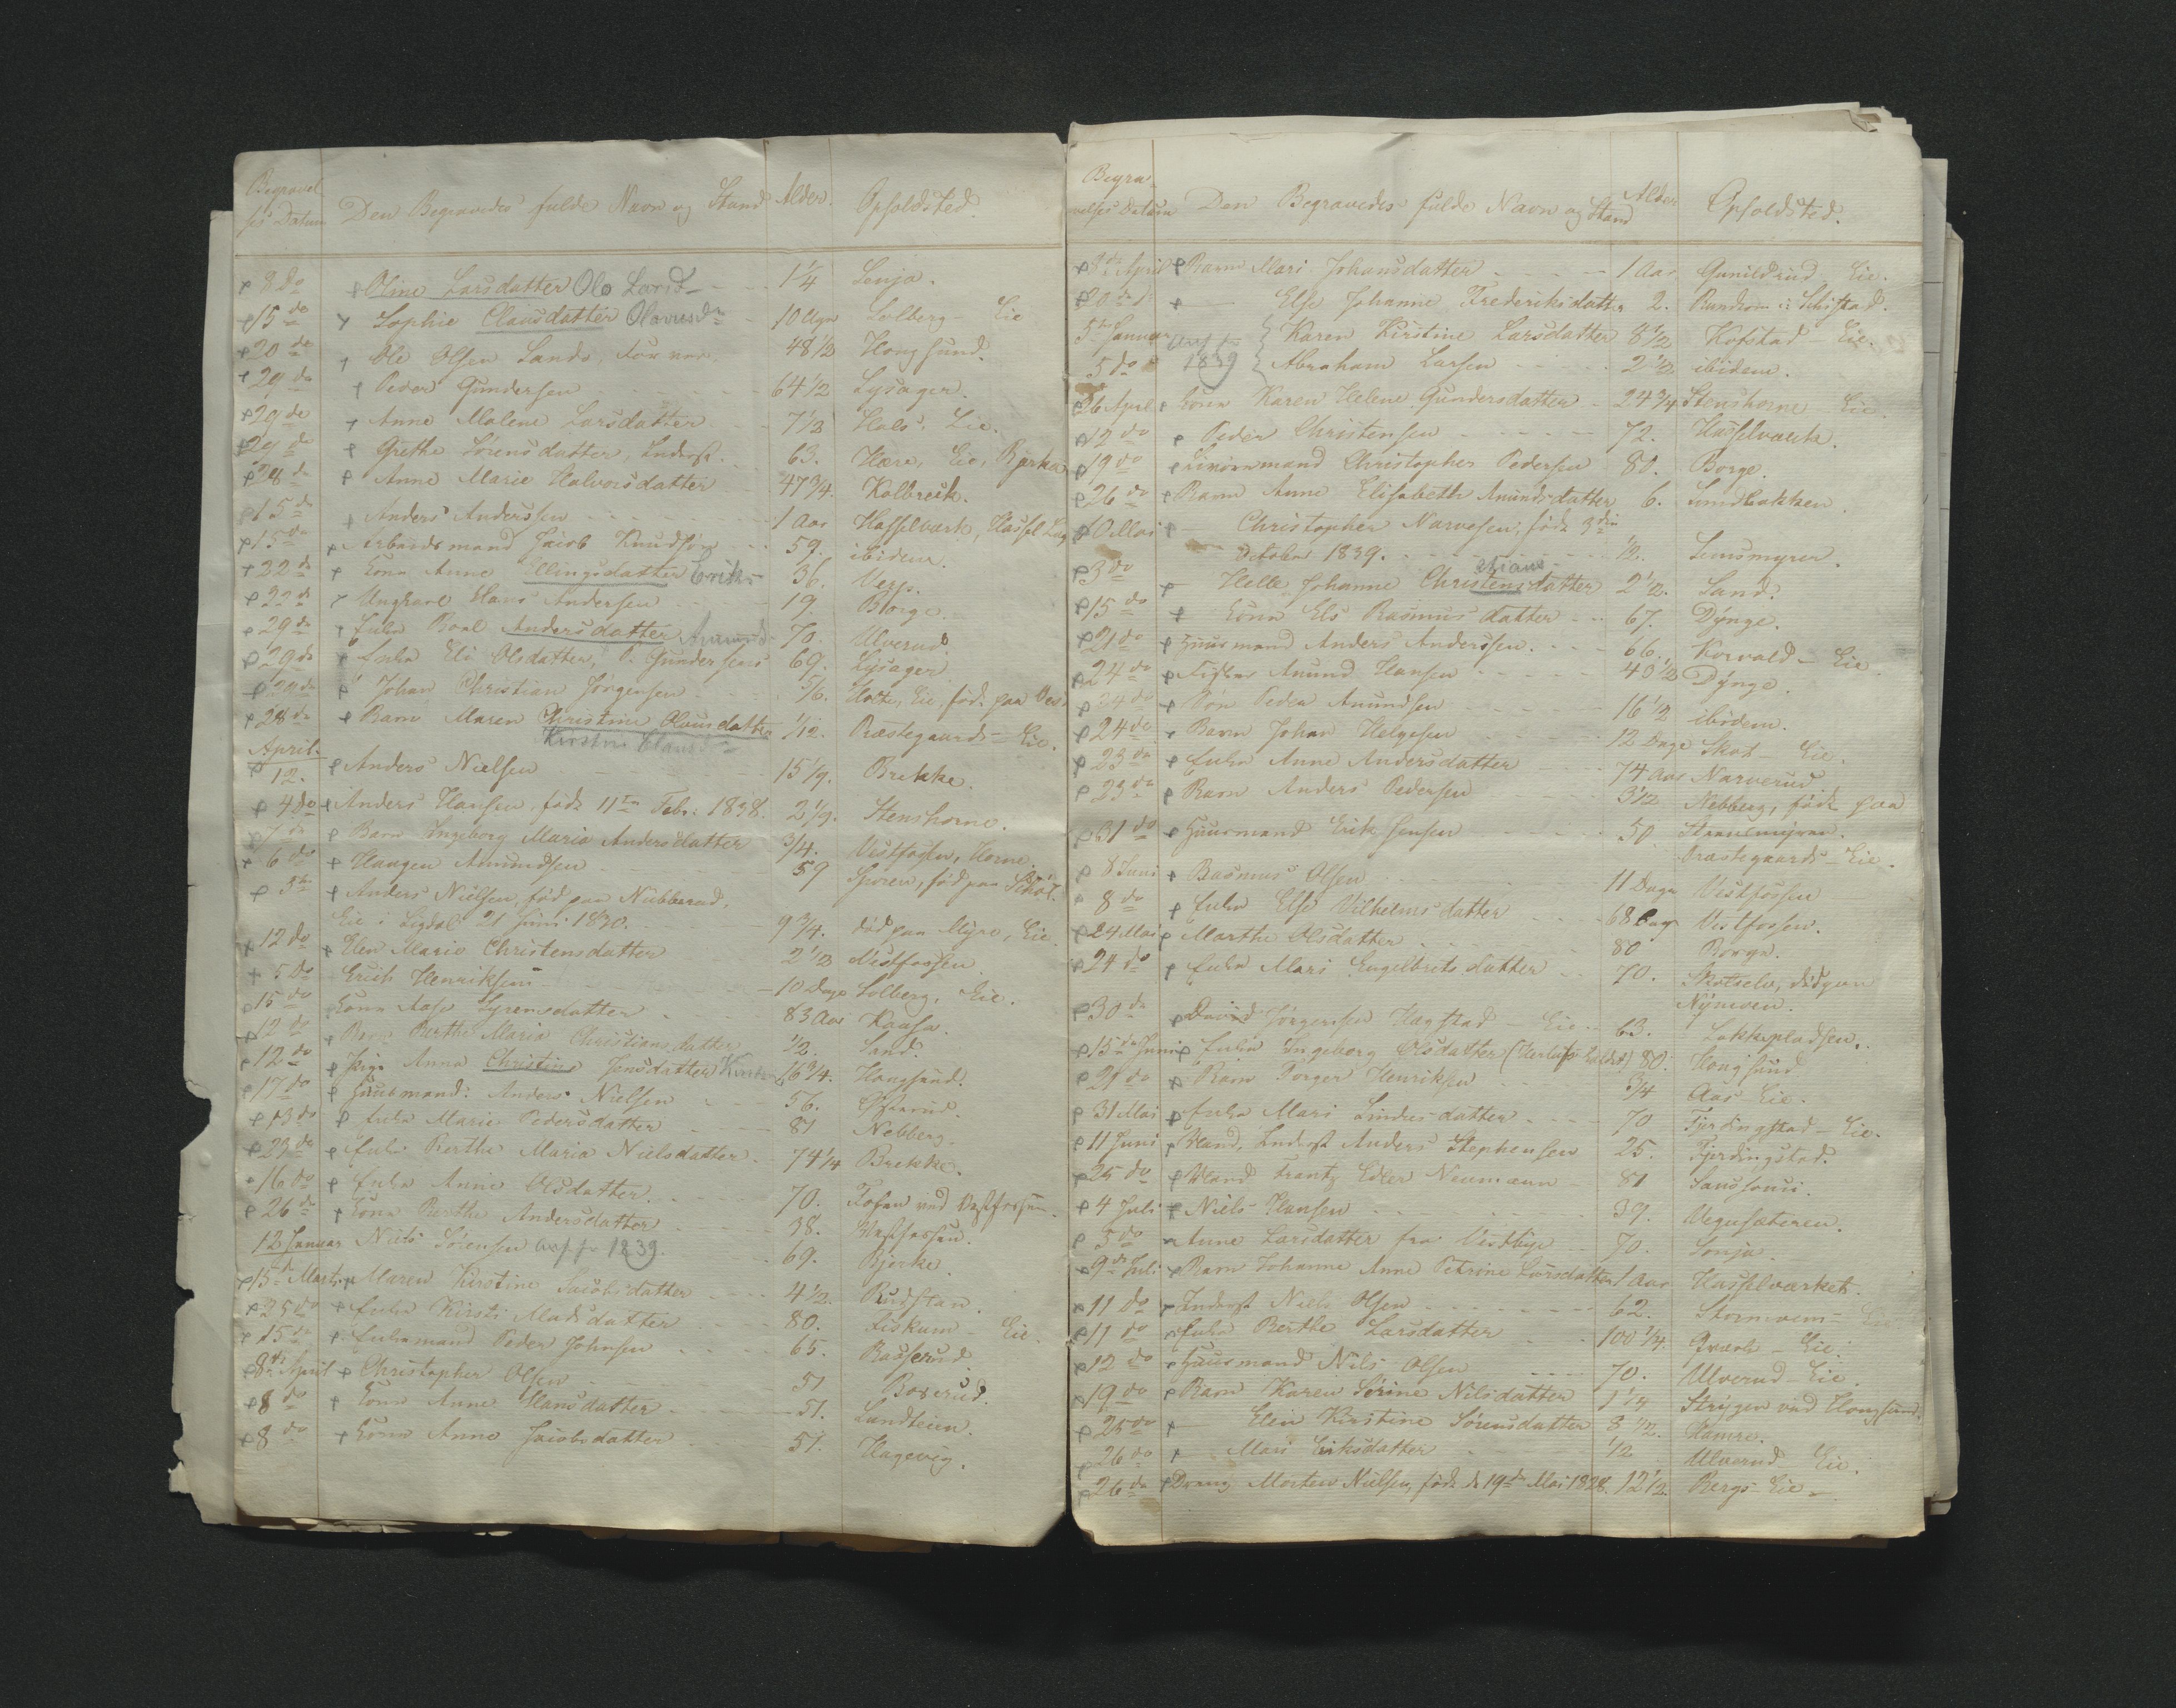 Begravel
ses Datum Den Begravedes fulde Navn og Stand Alder. Opholdsted.
8 do Oline Larsdatter Ole Larsd 1 1/4 Senja.
15 do Sophie Clausdatter Olavesdr 10 Uger Solberg - Eie
20 do Ole Olsen Sando 48 1/2 Hougsund.
29 do Peder Gundersen 64 1/2 Lysager.
29 do Anne Malene Larsdatter 7 1/2 Hals. Eie.
29 do Grethe Sørensdatter, Inderst. 63. Hære, Eie, Bjerke
28 do Anne Marie Halvorsdatter 47 3/4. Kolbrek.
15 do Anders Anderssen 1 Aar Hasselværk,
15 do Arbeidsmand Jacob Knudsen 59. ibidem.
22 do Kone Anne Ellingsdatter Eriks 36. Vers.
22 do Ungkarl Hans Andersen 19. Borge.
29 do Enke Boel Andersdatter 70. Ulverud.
29 do Enke Eli Olsdatter, P. Gundersens 69. Lysager.
29 do Johan Christian Jørgensen 5/6. Eie, født paa
28 do Barn Maren Christine Olausdatter 1/12. Præstegaards - Eie.
Kirstine Clausd
April.
12. Anders Nielsen 15 1/9. Brekke.
4 do Anders Hansen, født 11te Febr: 1838. 2 1/9. Stenshorne.
7 do Barn Ingeborg Maria Andersdatter 3/4. Vestfossen, Horne.
6 do Haagen Amundsen 59 Sporen, født paa
5te Anders Nielsen, født paa Nubberud,
Eie i Sigdal 21 Juni 1830. 9 3/4. død paa Myre, Eie
12 do Elen Marie Christensdatter 2 1/2 Vestfossen
5 do Erich Henriksen 10 Dage Solberg, Eie.
15 do Kone Aase Syrensdatter 83 Aar Kaasa.
12 do Barn Berthe Maria Christiansdatter 1/2. Sand.
12 do Pige Anna Christine Jensdatter Kirstine 16 3/4. Hougsund.
17 do Huusmand: Anders Nielsen 56.
13 do Enke Marie Pedersdatter 81 Nebberg.
23 do Enke Berthe Maria Nielsdatter. 74 1/4 Brekke.
16 do Enke Anne Olsdatter. 70. ved Vestfossen.
26 do Kone Berthe Andersdatter 38. Vestfossen.
12 Januar Niels Sørensen 1839. 69. Bjerke.
15 do Marts Maren Kirstine Jacobsdatter 4 1/2.
25 do Enke Kirsti Madsdatter 80. Liskum - Eie.
15 do Enkemand Peder Johnsen 65.
8de April Christopher Olsen 51
8 do Kone Anne Hansdatter 51. Landteien.
8 do Kone Anne Jacobsdatter 51. Hagevig.
Begra-
velses Datum Den Begravedes fulde Navn og Stand Alder Opholdsted.
April Barn Mari Johansdatter 1 Aar Gunildrud Eie.
20 do Else Johanne Frederiksdatter 2.
5te Januar Karen Kirstine Larsdatter 8 1/2 Kofstad - Eie.
5 do 1839 Abraham Larsen 2 1/2 ibidem.
26 April Kone Karen Helene Gundersdatter 24 3/4 Stenshorne Eie.
12 do Peder Christensen 72. Hasselværk.
19 do Christopher Pedersen 80. Borge.
26 do Barn Anne Elisabeth Amundsdatter 6. Lundbakken.
10 Mai Christopher Narvesen, født 3die
October 1839. 1/2. Lensmyren.
3 do Helle Johanne Christensdatter 2 1/2. Sand.
15 do Kone Els Rasmusdatter 67. Dynge.
21 do Huusmand Anders Anderssen. 66. Korvald - Eie
24 do Amund Hansen 40 1/2 Dynge.
24 do Søn Peder Amundsen 16 1/2 ibidem.
24 do Barn Johan Helgesen 12 Dage Skot Eie.
23 do Enke Anne Andersdatter 74 Aar Narverud.
23 do Barn Anders Pedersen 3 1/2 Nebberg, født paa
31 do Huusmand Erik Jensen 50 Præstegaards - Eie.
8 Juni Rasmus Olsen 11 Dage Vestfossen
8 do Enke Else Vilhelmsdatter 68 Vestfossen.
24 Mai Marthe Olsdatter 80 Borge.
24 do Enke Mari Engelbretsdatter 70. Skotselv, død paa
Nymoen.
30 do David Jørgensen Hagstad - Eie 63. Løkkepladsen.
15 do Juni Enke Ingeborg Olsdatter 80. Hougsund
29 do Barn Torger Henriksen 3/4 Aas Eie.
31 Mai Enke Mari Lindersdatter 70 Fjerdingstad - Eie.
11 Juni Mand, Inderst Anders Stephensen 25. Fjerdingstad.
25 do Mand Frantz Edler Neumann 81 Sanssouci.
4 Juli Niels Hansen 39. Vegusæteren.
5 do Anne Larsdatter fra Vestbye 70. Senja.
9 do Juli Barn Johanne Anne Petrine Larsdatter 1 Aar Hasselværket.
11 do Inderst Niels Olsen 62.
11 do Enke Berthe Larsdatter 100 1/4. Eie.
12 do Huusmand Nils Olsen 70. Ulverud - Eie.
19 do Barn Karen Sørine Nilsdatter 1 1/4 Strygen ved Hougsund.
25 do Elen Kirstine Sørensdatter 8 1/2. Hamre.
26 do Mari Eriksdatter 1/2 Ulverud Eie.
26 do Dreng Morten Nielsen, født d. 19de Mai 1828. 12 1/2. Bergs - Eie.